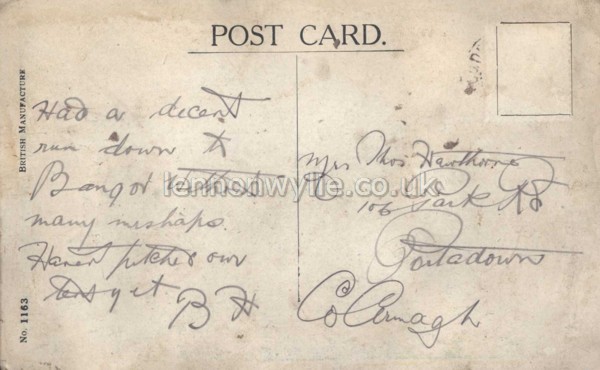 POST CARD.
BRITISH MANUFACTURE
No. 1163
Had a decent
run down to
Bangor without
many mishaps.
Havent pitched our
tent yet
B H
Mrs Thos Hawthorne
106 Park Rd
Portadown
Co Armagh
lennonwylie.co.uk